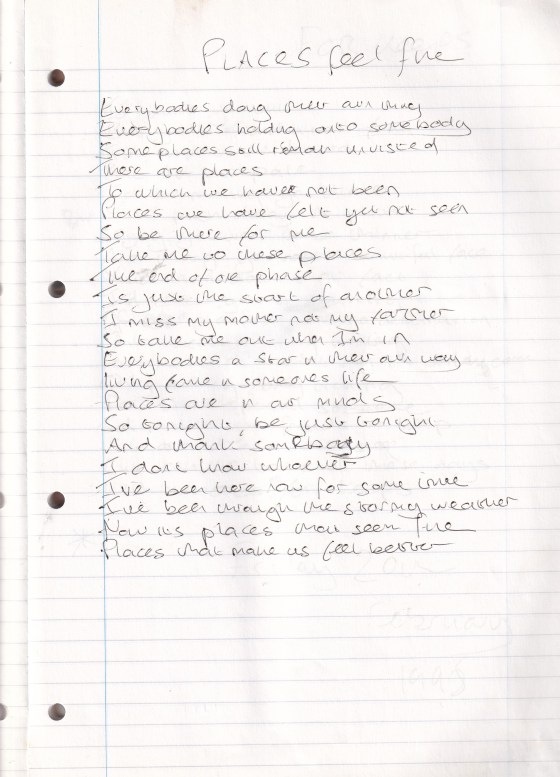 PLACES feel fine
Everybodies doing their own thing
Everybodies holding onto somebody
Some places still remain unvisited
There are places
To which we have not been
Places we have felt yet not seen
So be there for me
Take me to these places
The end of one phase
Is just the start of another
I miss my mother not my farther
So take me out when I'm in
Everybodies a star in their own way
living fame in someones life
Places are in our minds
So tonight, be just tonight
And thank somebody
I dont know whoever
I've been here now for some time
I've been through the stormy weather
Now its places that seem fine
Places that make us feel better